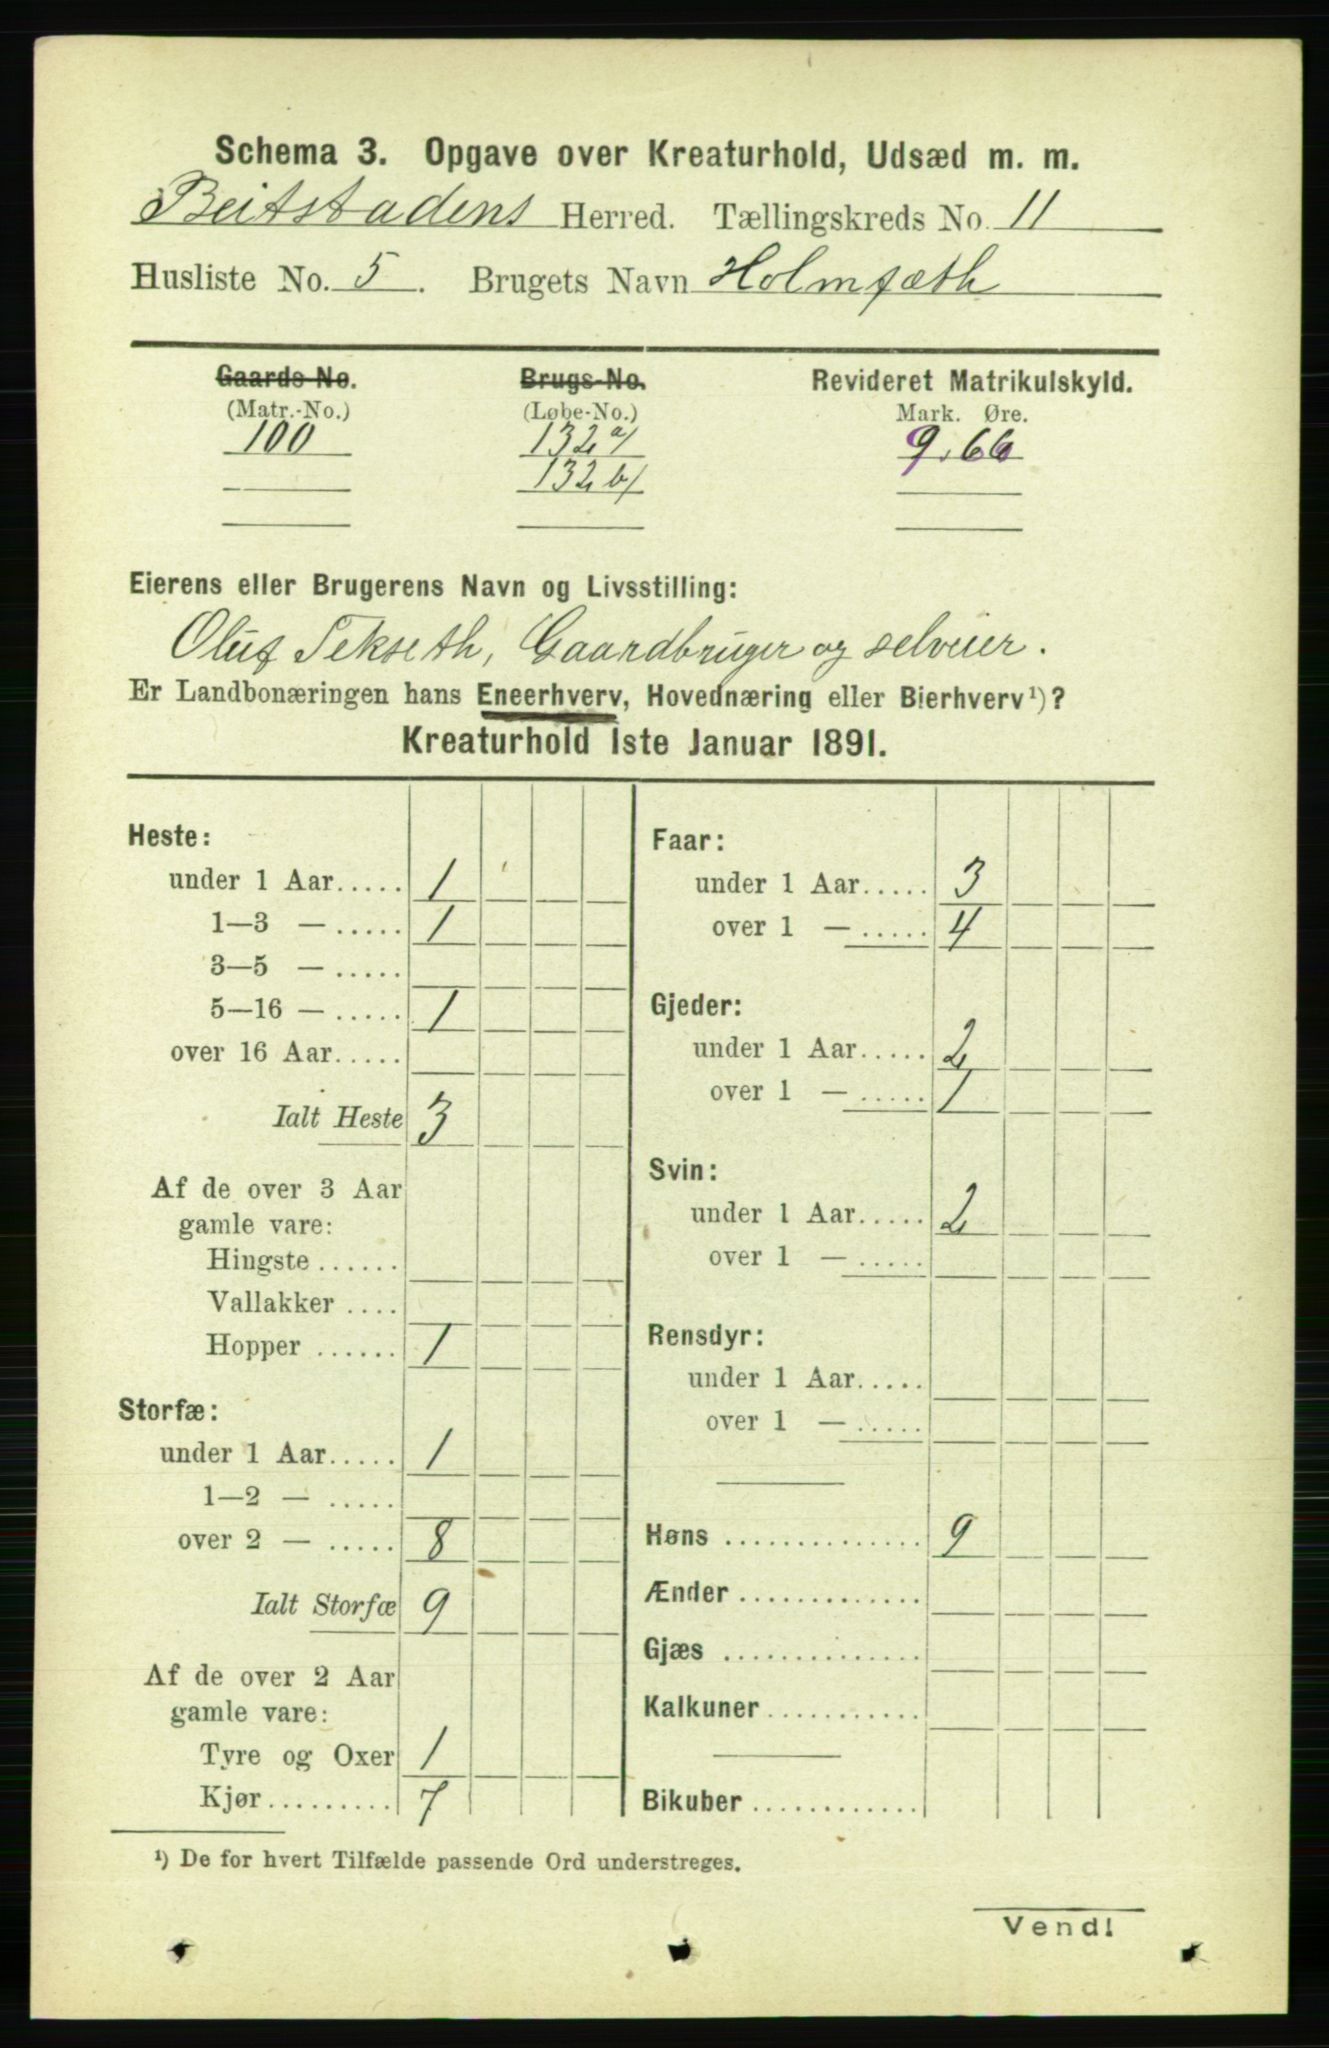 Schema 3. Opgave over Kreaturhold, Udsæd m. m.
Beitstadens Herred. Tællingskreds No. 11
Husliste No. 5. Brugets Navn Holmsæth
Gaards-No. Brugs-No. Revideret Matrikulskyld.
(Matr.-No.) (Løbe-No.) Mark. Øre.
100 132 a/ 9.66
132 b/
Eierens eller Brugerens Navn og Livsstilling:
Oluf Tekseth, Gaardbruger og selveier.
Er Landbonæringen hans Eneerhverv, Hovednæring eller Bierhverv¹)?
Kreaturhold 1ste Januar 1891.
Heste:
under 1 Aar..... 1
1—3 — ..... 1
3—5 — .....
5—16 — ..... 1
over 16 Aar.....
Ialt Heste 3
Af de over 3 Aar
gamle vare:
Hingste ......
Vallakker ....
Hopper ...... 1
Storfæ:
under 1 Aar..... 1
1—2 — .....
over 2 — ..... 8
Ialt Storfæ 9
Af de over 2 Aar
gamle vare:
Tyre og Oxer 1
Kjør......... 7
Faar:
under 1 Aar..... 3
over 1 — ..... 4
Gjeder:
under 1 Aar..... 2
over 1 — ..... 1
Svin:
under 1 Aar..... 2
over 1 — .....
Rensdyr:
under 1 Aar.....
over 1 — .....
Høns .............. 9
Ænder .............
Gjæs ..............
Kalkuner...........
Bikuber ............
¹) De for hvert Tilfælde passende Ord understreges.
Vend!